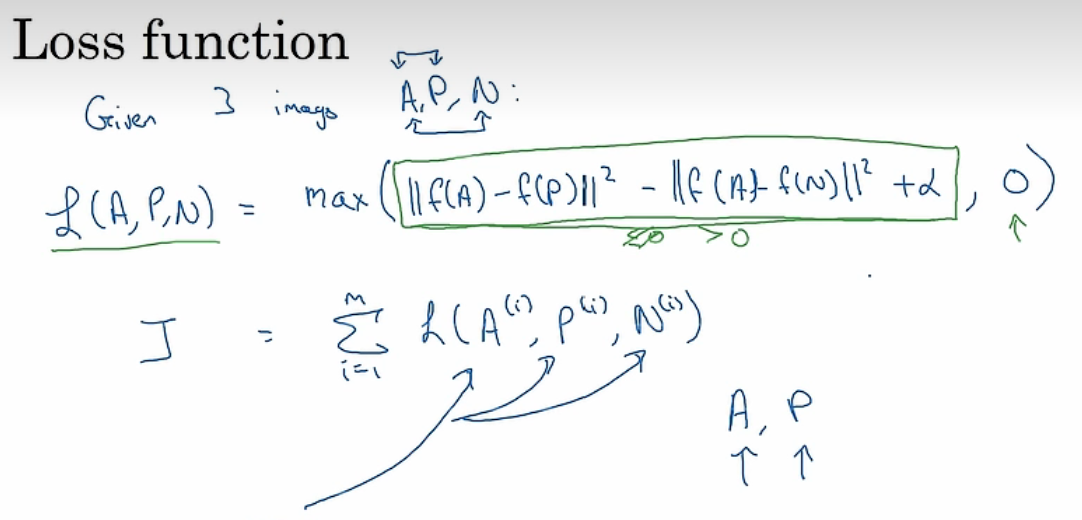 Loss function
Given 3 images A, P, N:
L(A, P, N) = max(||f(A) - f(P)||² - ||f(A) - f(N)||² + α, 0)
> 0
J = Σ_{i=1}^{M} L(A^{(i)}, P^{(i)}, N^{(i)})
A, P